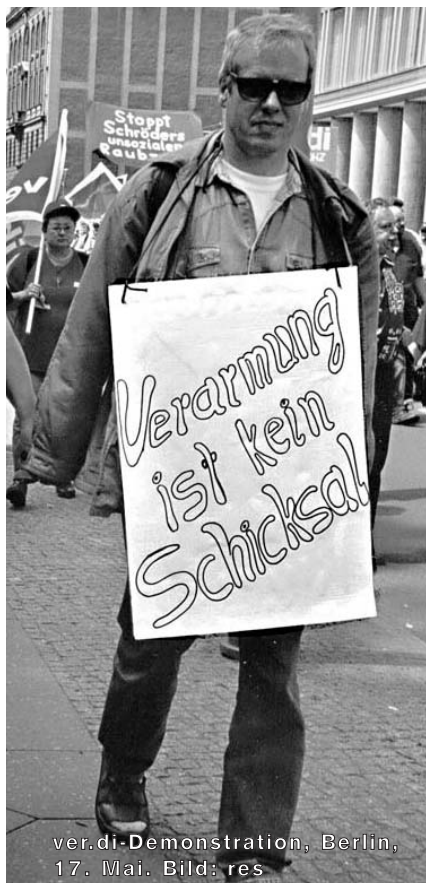 Stoppt
Schröders
unsozialen
Raub
di
NZ
Verarmung
ist kein
Schicksal
ver.di-Demonstration, Berlin,
17. Mai. Bild: res